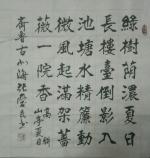 綠樹蔭濃夏日
長樓臺倒影入
池塘水精簾動
微風起滿架薔
薇一院香
高駢
山亭夏日
齊魯古小海張